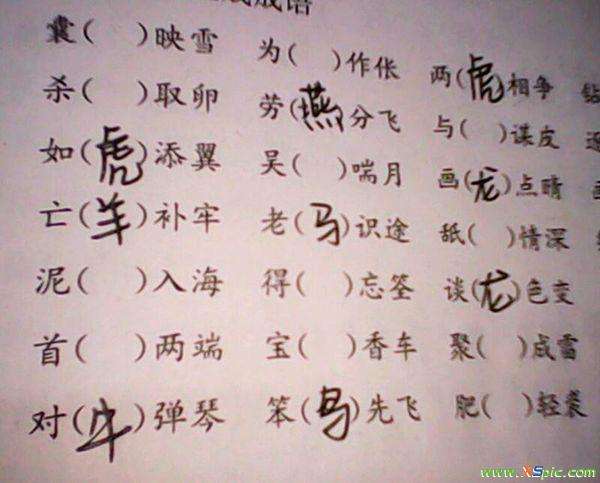 成语
囊( )映雪 为( )作伥 两(虎)相争 钻
杀( )取卵 劳(燕)分飞 与( )谋皮
如(虎)添翼 吴( )喘月 画(龙)点睛
亡(羊)补牢 老(马)识途 舐( )情深
泥( )入海 得( )忘筌 谈(龙)色变
首( )两端 宝( )香车 聚( )成雷
对(牛)弹琴 笨(鸟)先飞 肥( )轻裘
www.XSpic.com